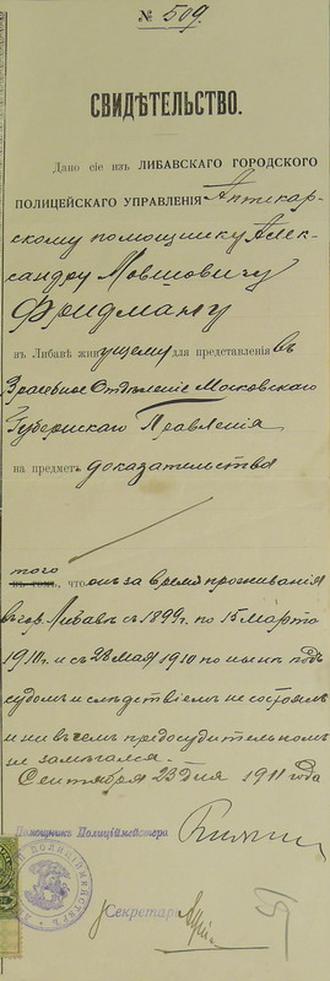 № 509.
СВИДѢТЕЛЬСТВО.
Дано сіе изъ ЛИБАВСКАГО ГОРОДСКОГО
ПОЛИЦЕЙСКАГО УПРАВЛЕНІЯ Аптекар-
скому помощнику Алек-
сандру Мовшовичу
Фридману
въ Либавѣ живущему для представленія въ
Врачебное Отдѣленіе Московскаго
Губернскаго Правленія
на предметъ доказательства
того
въ томъ, что онъ за время проживанія
въ гор. Либавѣ съ 1899 г. по 15 марта
и съ 28 мая 1910 по нынѣ подъ
судомъ и слѣдствіемъ не состоялъ
и ни въ чемъ предосудительномъ
не замѣчался.
Сентября 23 дня 1911 года
Помощникъ Полиціймейстера
ПОЛИЦІЙМЕЙСТЕРЪ
Секретарь